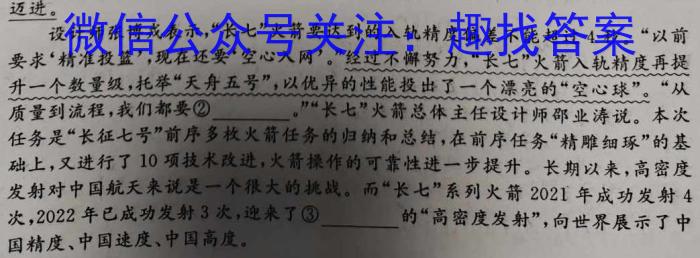 迈进。
设计师张博戎表示，“长七”火箭要达到的入轨精度偏差不能超过4 “以前
微信公众号关注：趣找答案
要求‘精准投篮’，现在还要‘空心入网’。”经过不懈努力，“长七”火箭入轨精度再提
升一个数量级，托举“天舟五号”，以优异的性能投出了一个漂亮的“空心球”。“从
质量到流程，我们都要②________。”“长七”火箭总体主任设计师邵业涛说。本次
任务是“长征七号”前序多枚火箭任务的归纳和总结，在前序任务“精雕细琢”的基
础上，又进行了10项技术改进，火箭操作的可靠性进一步提升。长期以来，高密度
发射对中国航天来说是一个很大的挑战。而“长七”系列火箭2021年成功发射4
次，2022年已成功发射3次，迎来了③________的“高密度发射”，向世界展示了中
国精度、中国速度、中国高度。